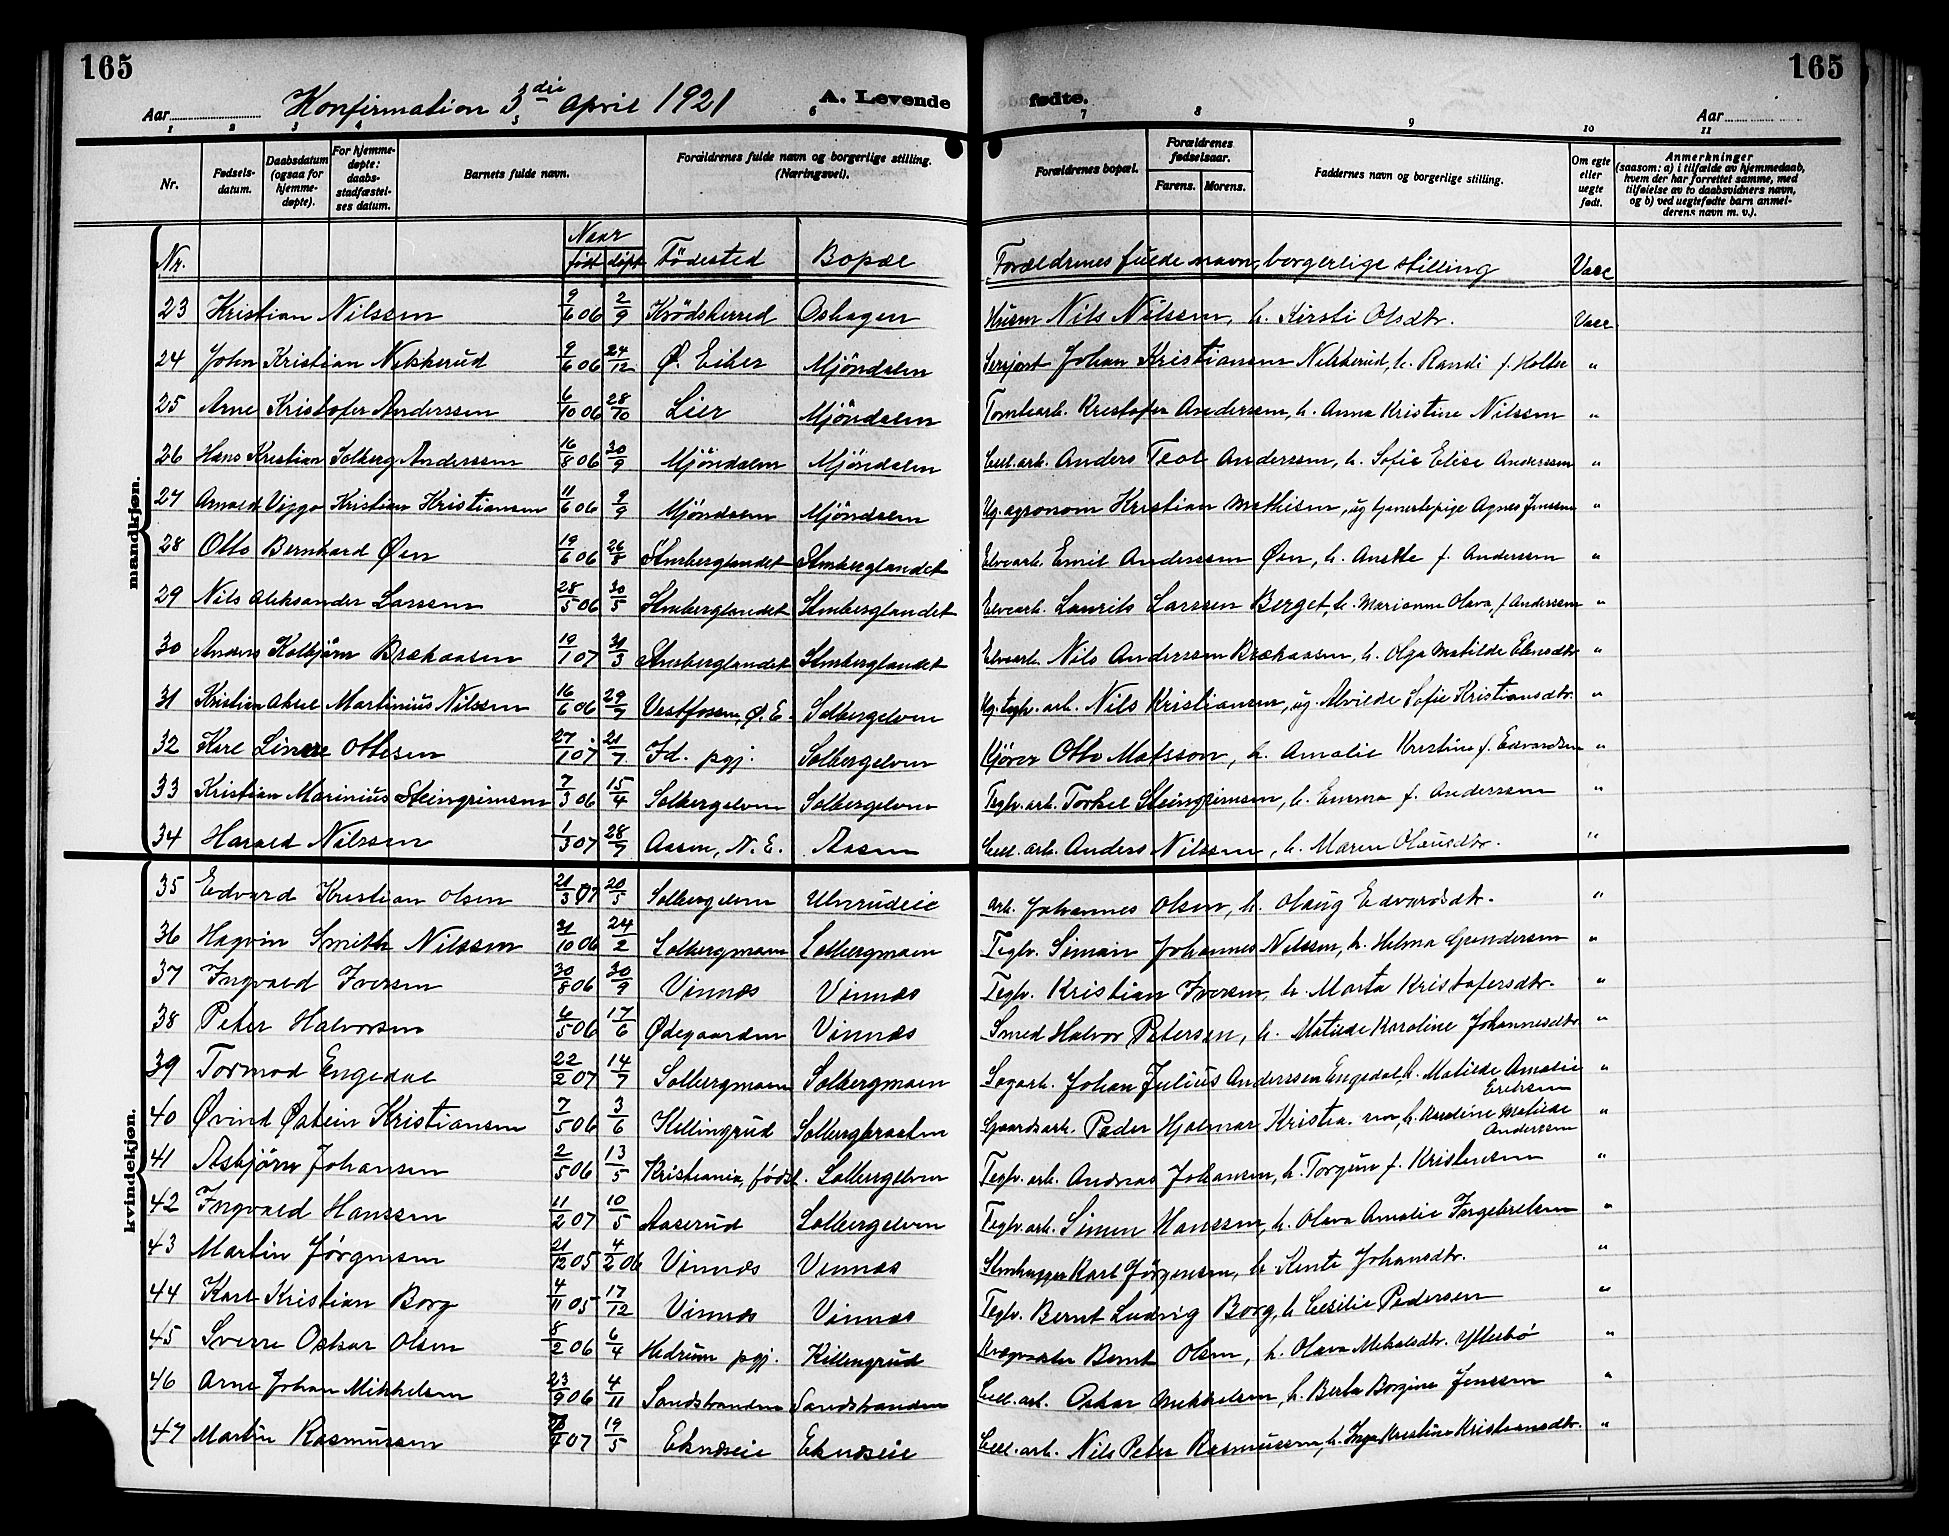 165
165
Aar
Konfirmation 3die april 1921
A. Levende
fødte.
Aar
1 2 3 4 5 6 7 8 9 10 11
Nr.
Fødsels-
datum.
Daabsdatum
(ogsaa for
hjemme-
døpte).
For hjemme-
døpte:
daabs-
stadfæstel-
ses datum.
Barnets fulde navn.
Forældrenes fulde navn og borgerlige stilling.
(Næringsvei).
Forældrenes bopæl.
Forældrenes
fødselsaar.
Farens. Morens.
Faddernes navn og borgerlige stilling.
Om egte
eller
uegte
født.
Anmerkninger
(saasom: a) i tilfælde av hjemmedaab,
hvem der har forrettet samme, med
tilføielse av to daabsvidners navn,
og b) ved uegtefødte barn anmel-
derens navn m. v.).
mandkjøn.
kvindekjøn.
Naar
Nr. født døpt Födested Bopæl Forældrenes fulde navn, borgerlige stilling Vacc
23 Kristian Nilssen 9/6 06 2/9 Krödsherred Oshagen Husm Nils Nilssen, h. Kirsti Olsdtr. Vacc
24 John Kristian Nelskerud 9/6 06 24/12 Ø. Eiker Mjöndalen Serjant Johan Kristiansen Nelskerud, h. Randi f. Holtse "
25 Arne Kristofer Anderssen 6/10 06 28/10 Lier Mjöndalen Tomtearb. Kristofer Anderssen, h. Anna Kristine Nilssen "
26 Hans Kristian Solberg Anderssen 16/8 06 30/9 Mjöndalen Mjöndalen Cell.arb. Anders Teol Anderssen, h. Sofie Elise Anderssen "
27 Arnold Viggo Kristian Kristiansen 11/6 06 9/9 Mjöndalen Mjöndalen Ug. agronom Kristian Mathisen, ug tjenestepige Agnes Jenssen "
28 Otto Bernhard Øen 19/6 06 26/8 Stenberglandet Stenberglandet Elvearb. Emil Anderssen Øen, h. Anette f. Anderssen "
29 Nils Aleksander Larssen 28/5 06 30/5 Stenberglandet Stenberglandet Elvearb. Laurits Larssen Berget, h. Marianne Olava, f Anderssen "
30 Anders Kolbjørn Brækaasen 19/1 07 31/3 Stenberglandet Stenberglandet Elvearb. Nils Anderssen Brækaasen, h. Olga Matilde Ellensdtr "
31 Kristian Aksel Martinius Nilssen 16/6 06 29/7 Vestfossen, Ø. E. Solbergelven Ug. teglv. arb. Nils Kristiansen, ug Alvilde Sofie Kristiansdtr. "
32 Karl Linere Ottesen 27/1 07 21/7 Id. pgj. Solbergelven Kjörer Otto Matsson, h. Amalie Kristine f. Edvardsen "
33 Kristian Marinius Steingrimsen 7/3 06 15/4 Solbergelven Solbergelven Teglv. arb. Torkel Steingrimsen, h. Emma f. Anderssen "
34 Harald Nilssen 1/3 07 28/7 Aasen, N. E. Aasen Cell. arb. Anders Nilssen, h. Maren Olausdtr. "
35 Edvard Kristian Olsen 21/3 07 20/5 Solbergelven Ulverudeie arb. Johannes Olsen, h. Olaug Edvardsdtr. "
36 Hagvin Smith Nilssen 31/10 06 24/2 Solbergmoen Solbergmoen Teglv. Simon Johannes Nilssen, h. Helma Gundersen "
37 Ingvald Iversen 30/8 06 30/9 Vinnæs Vinnæs Teglv. Kristian Iversen, h. Marta Kristofersdtr. "
38 Peter Halvorsen 6/5 06 17/6 Ødegaarden Vinnæs Smed Halvor Petersen, h. Matilde Karoline Johannesdtr "
39 Tormod Engedal 22/2 07 14/7 Solbergmoen Solbergmoen Sagarb. Johan Julius Anderssen Engedal, h. Matilde Amalie Eriksen "
40 Øvind Østein Kristiansen 7/5 06 3/6 Killingrud Solbergbraaten Gaardsarb. Peder Hjalmar Kristia. sen, h. Karoline Matilde Anderssen "
41 Asbjørn Johansen 2/5 06 13/5 Kristiania, födst. Solbergelven Teglv. arb. Andreas Johansen, h. Torgun f. Kristensen "
42 Ingvald Hanssen 11/2 07 10/5 Aaserud Solbergelven Teglv. arb. Simen Hanssen, h. Olava Amalie Ingebretsen "
43 Martin Jørgensen 21/12 05 4/2 06 Vinnæs Vinnæs Stenhugger Karl Jörgensen, h. Kente Johansdtr. "
44 Karl Kristian Borg 4/11 05 17/12 Vinnæs Vinnæs Teglv. Bernt Ludvig Borg, h Cesilie Pedersen "
45 Sverre Oskar Olsen 8/2 06 6/4 Hedrum pgj. Killingrud Bernt Olsen, h. Olava Mikalsdtr. Ytterbø "
46 Arne Johan Mikkelsen 23/9 06 4/11 Sandstranden Sandstranden Cell. arb. Oskar Mikkelsen, h. Berta Borgine Jenssen "
47 Martin Rasmussen 07 19/5 Eknæseie Eknæseie Cell. arb. Nils Peter Rasmussen, h. Inga Kristine Kristiansdtr. "